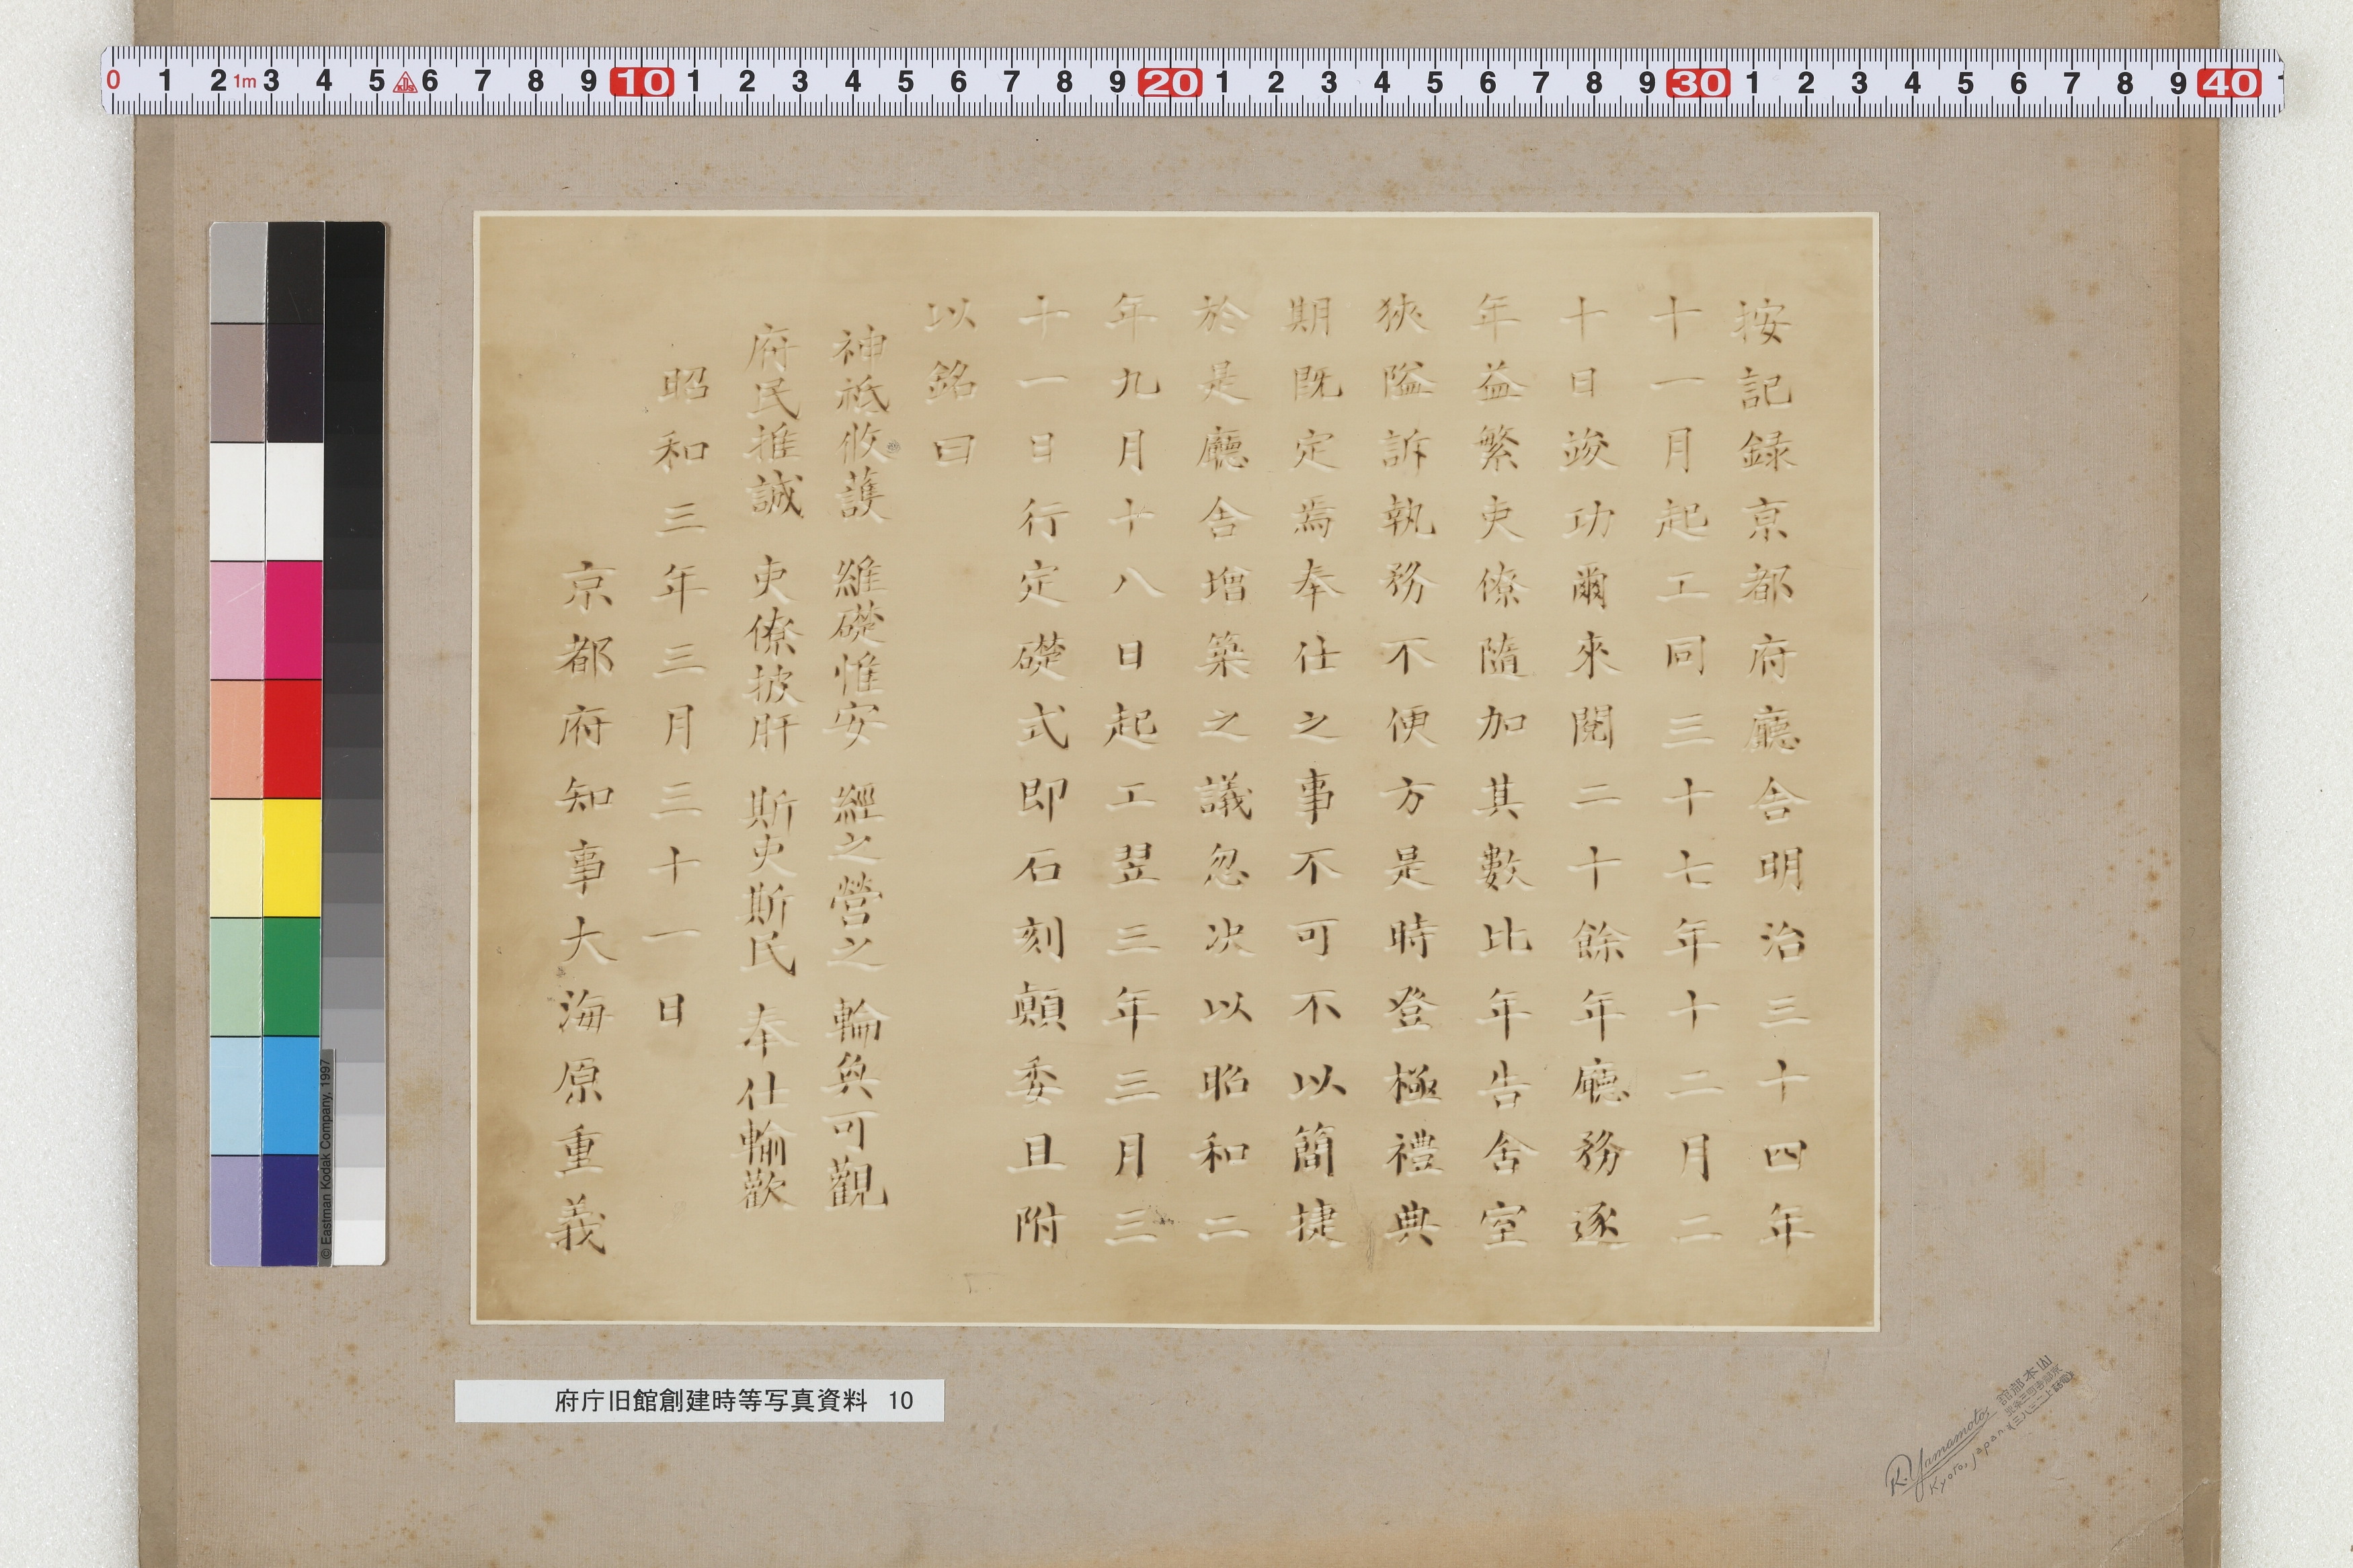 按記録京都府廳舎明治三十四年
十一月起工同三十七年十二月二
十日竣功爾來閲二十餘年廳務逐
年益繁吏僚隨加其數比年告舎室
狹隘訴執務不便方是時登極禮典
期既定焉奉仕之事不可不以簡捷
於是廳舎増築之議忽决以昭和二
年九月十八日起工翌三年三月三
十一日行定礎式即石刻顛委且附
以銘曰
神祗攸護 維礎惟安 經之營之 輪奐可觀
府民推誠 吏僚披肝 斯吏斯民 奉仕輸歡
昭和三年三月三十一日
京都府知事大海原重義
府庁旧館創建時等写真資料 10
K. Yamamoto
Kyoto, Japan
© Eastman Kodak Company, 1997
0 1 2 1m 3 4 5 6 7 8 9 10 1 2 3 4 5 6 7 8 9 20 1 2 3 4 5 6 7 8 9 30 1 2 3 4 5 6 7 8 9 40